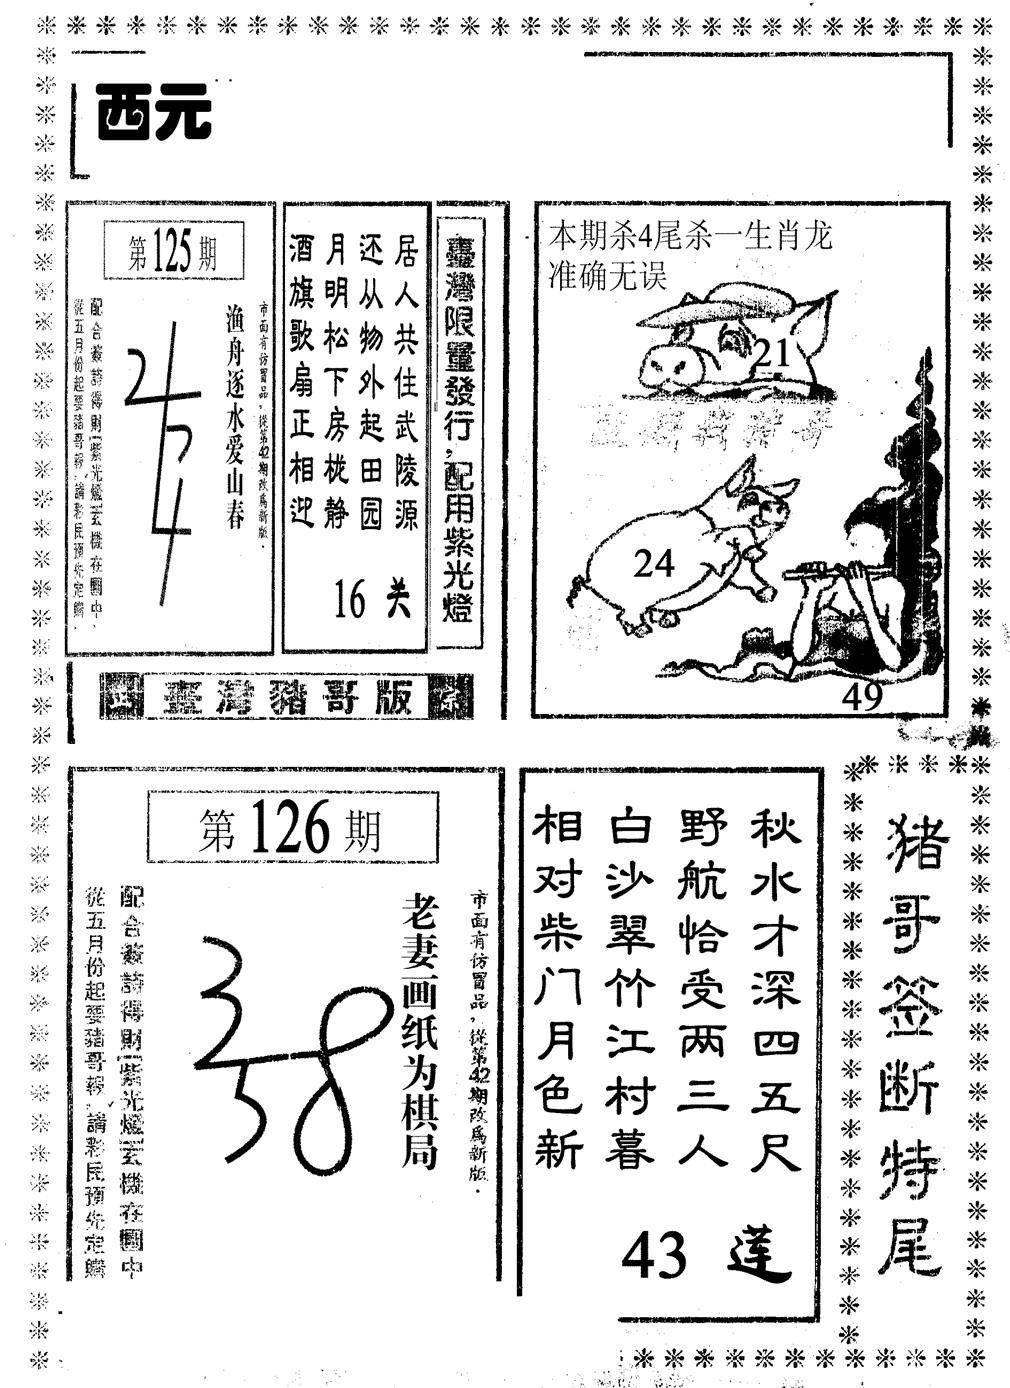 西元
第125期
市面有仿冒品，從第42期改爲新版．
渔舟逐水爱山春
配合簽詩得財(紫光燈)玄機在圖中．
從五月份起要豬哥報，請彩民預先定購．
居人共住武陵源
还从物外起田园
月明松下房栊静
酒旗歌扇正相迎
16 关
臺灣限量發行，配用紫光燈
臺灣豬哥版
本期杀4尾杀一生肖龙
准确无误
21
24
49
第126期
市面有仿冒品，從第42期改爲新版．
老妻画纸为棋局
配合簽詩得財(紫光燈)玄機在圖中
從五月份起要豬哥報，請彩民預先定購
秋水才深四五尺
野航恰受两三人
白沙翠竹江村暮
相对柴门月色新
43 莲
猪哥签断特尾